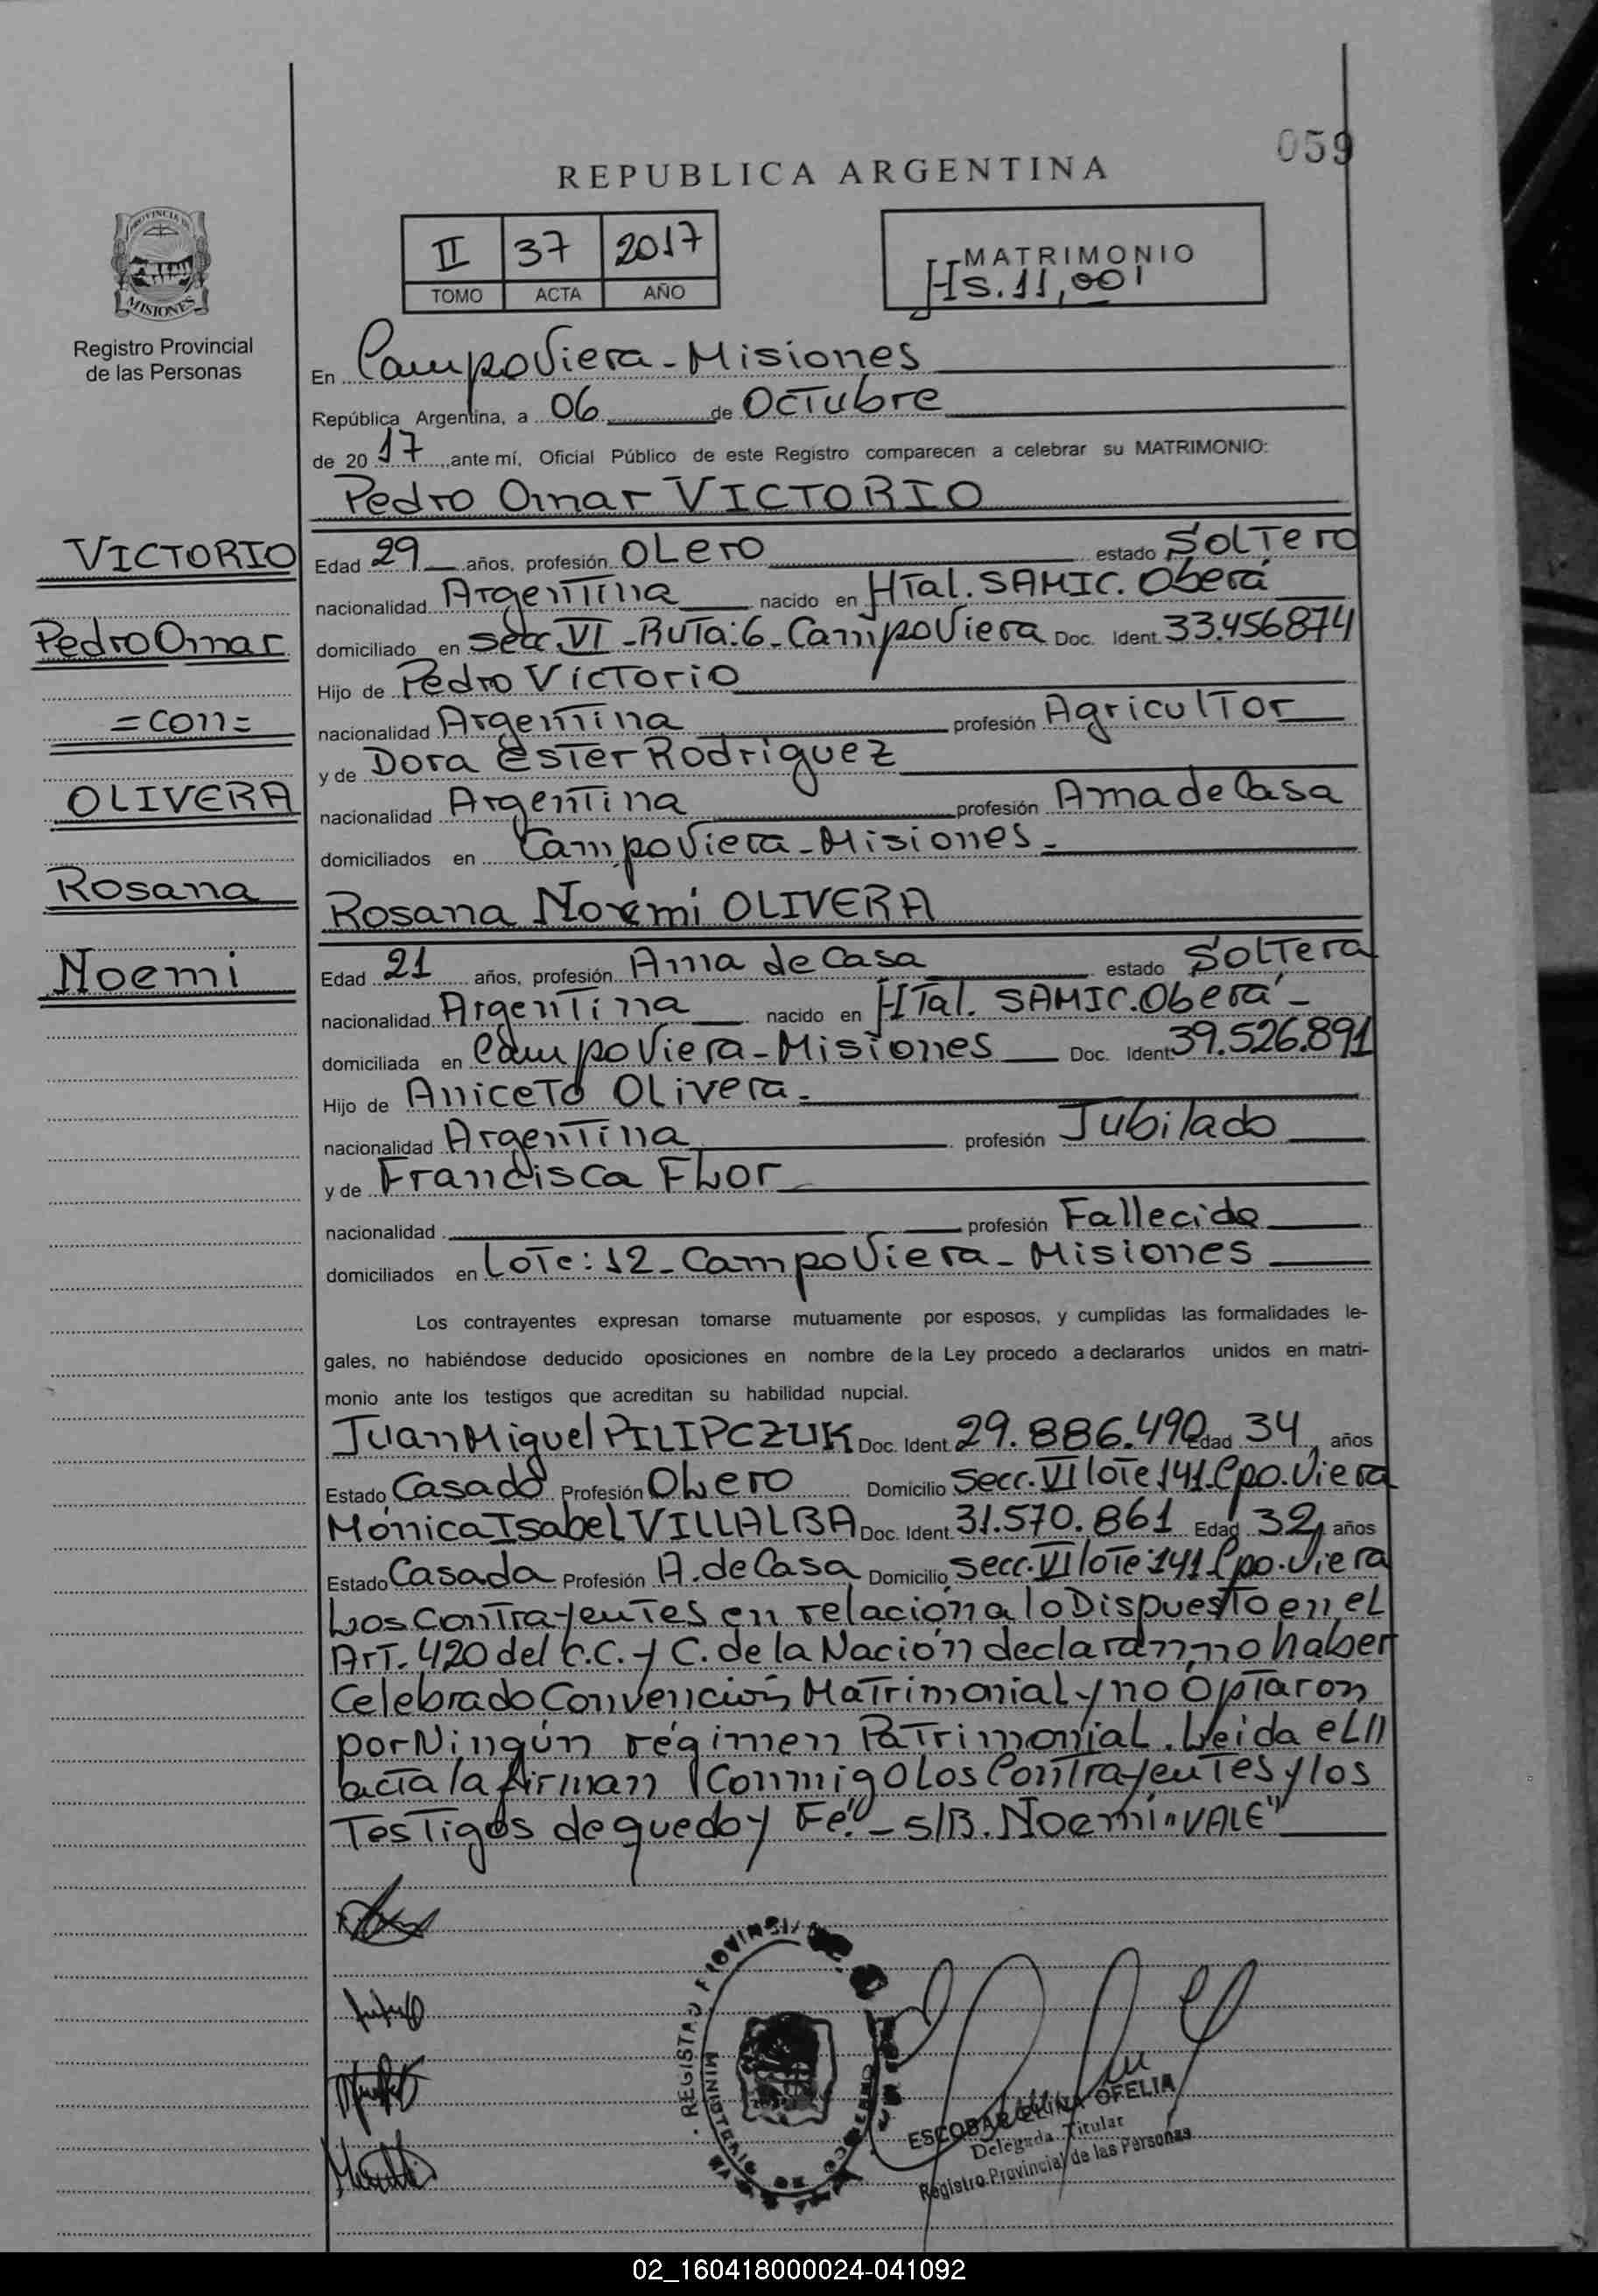 059
REPUBLICA ARGENTINA
PROVINCIA DE
MISIONES
Registro Provincial
de las Personas
II 37 2017
TOMO ACTA AÑO
MATRIMONIO
Hs. 11,001
En Campo Viera - Misiones
República Argentina, a 06 de Octubre
de 2017, ante mí, Oficial Público de este Registro comparecen a celebrar su MATRIMONIO:
Pedro Omar VICTORIO
VICTORIO
Pedro Omar
= con =
OLIVERA
Rosana
Noemi
Edad 29 años, profesión Olero estado Soltero
nacionalidad Argentina nacido en Htal. SAMIC. Oberá
domiciliado en secc. VI - Ruta: 6 - Campo Viera Doc. Ident. 33.456874
Hijo de Pedro Victorio
nacionalidad Argentina profesión Agricultor
y de Dora Ester Rodriguez
nacionalidad Argentina profesión Ama de Casa
domiciliados en Campo Viera - Misiones -
Rosana Noemi OLIVERA
Edad 21 años, profesión Ama de Casa estado Soltera
nacionalidad Argentina nacido en Htal. SAMIC. Oberá -
domiciliada en Campo Viera - Misiones Doc. Ident 39.526.891
Hijo de Aniceto Olivera -
nacionalidad Argentina profesión Jubilado
y de Francisca Flor
nacionalidad profesión Fallecida
domiciliados en Lote: 12 - Campo Viera - Misiones
Los contrayentes expresan tomarse mutuamente por esposos, y cumplidas las formalidades le-
gales, no habiéndose deducido oposiciones en nombre de la Ley procedo a declararlos unidos en matri-
monio ante los testigos que acreditan su habilidad nupcial.
Juan Miguel PILIPCZUK Doc. Ident. 29.886.490 Edad 34, años
Estado Casado Profesión Olero Domicilio Secc. VI lote 141. Cpo. Viera
Mónica Isabel VILLALBA Doc. Ident. 31.570.861 Edad 32, años
Estado Casada Profesión A. de Casa Domicilio Secc. VI lote: 141 Cpo. Viera
Los Contrayentes en relación a lo Dispuesto en el
Art. 420 del C.C. y C. de la Nación declaran, no haber
Celebrado Convención Matrimonial y no Optaron
por Ningún régimen Patrimonial. Leida el
acta la firman Conmigo Los Contrayentes y los
Testigos de que doy Fé. - S/B. Noemi "VALE"
REGISTRO PROVINCIAL
ESCOBAR ELINA OFELIA
Delegada Titular
Registro Provincial de las Personas
02_160418000024-041092